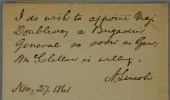 I do wish to appoint Maj.
Doubleday a Brigadier
General as soon as Gen.
McClellan is willing.
A. Lincoln
Nov. 27. 1861